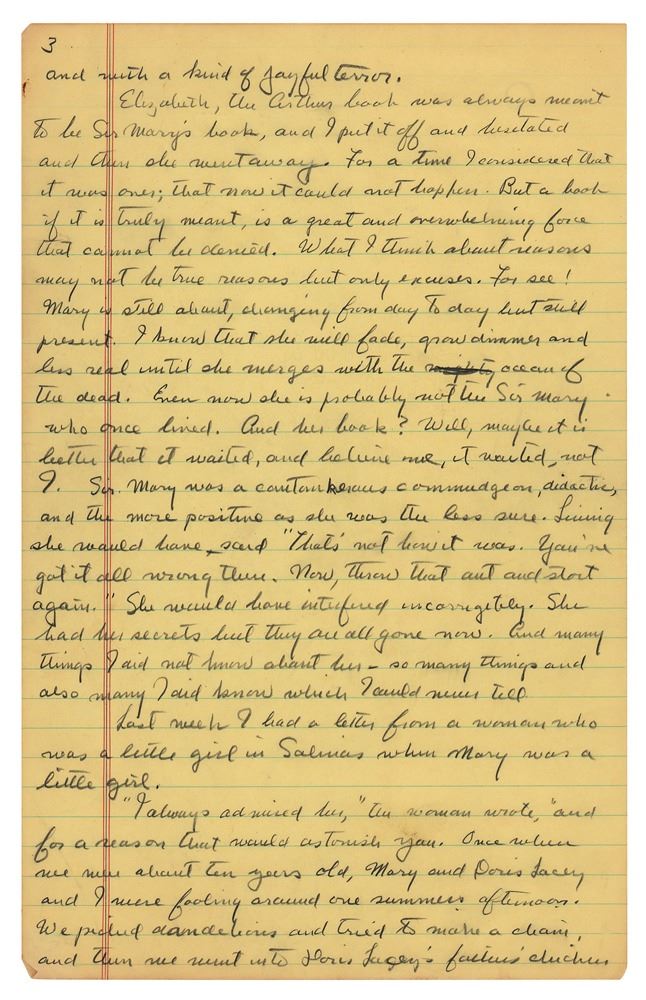 3
and with a kind of joyful terror.
Elizabeth, the Arthur book was always meant
to be Sir Mary's book, and I put it off and hesitated
and then she went away. For a time I considered that
it was over; that now it could not happen. But a book
if it is truly meant, is a great and overwhelming force
that cannot be denied. What I think about reasons
may not be true reasons but only excuses. For see!
Mary is still about, changing from day to day but still
present. I know that she will fade, grow dimmer and
less real until she merges with the mighty ocean of
the dead. Even now she is probably not the Sir Mary
who once lived. And her book? Well, maybe it is
better that it waited, and believe me, it waited, not
I. Sir Mary was a cantankerous commudgeon, didactic,
and the more positive as she was the less sure. Living
she would have said "That's not how it was. You've
got it all wrong there. Now, throw that out and start
again." She would have interfered incorrigebly. She
had her secrets but they are all gone now. And many
things I did not know about her – so many things and
also many I did know which I could never tell
Last week I had a letter from a woman who
was a little girl in Salinas when Mary was a
little girl.
"I always admired her," the woman wrote, "and
for a reason that would astonish you. Once when
we were about ten years old, Mary and Doris Lacey
and I were fooling around one summers afternoon.
We picked dandelions and tried to make a chain,
and then we went into Doris Lacey's father's chicken